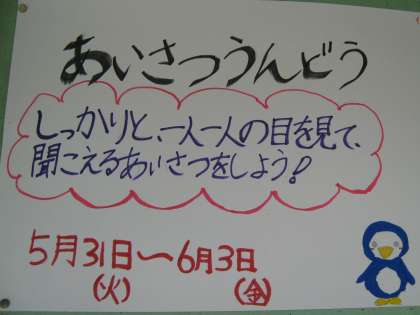 あいさつうんどう
しっかりと、一人一人の目を見て、
聞こえるあいさつをしよう!
5月31日〜6月3日
(火) (金)